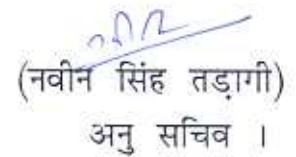 (नवीन सिंह तड़ागी)
अनु सचिव ।